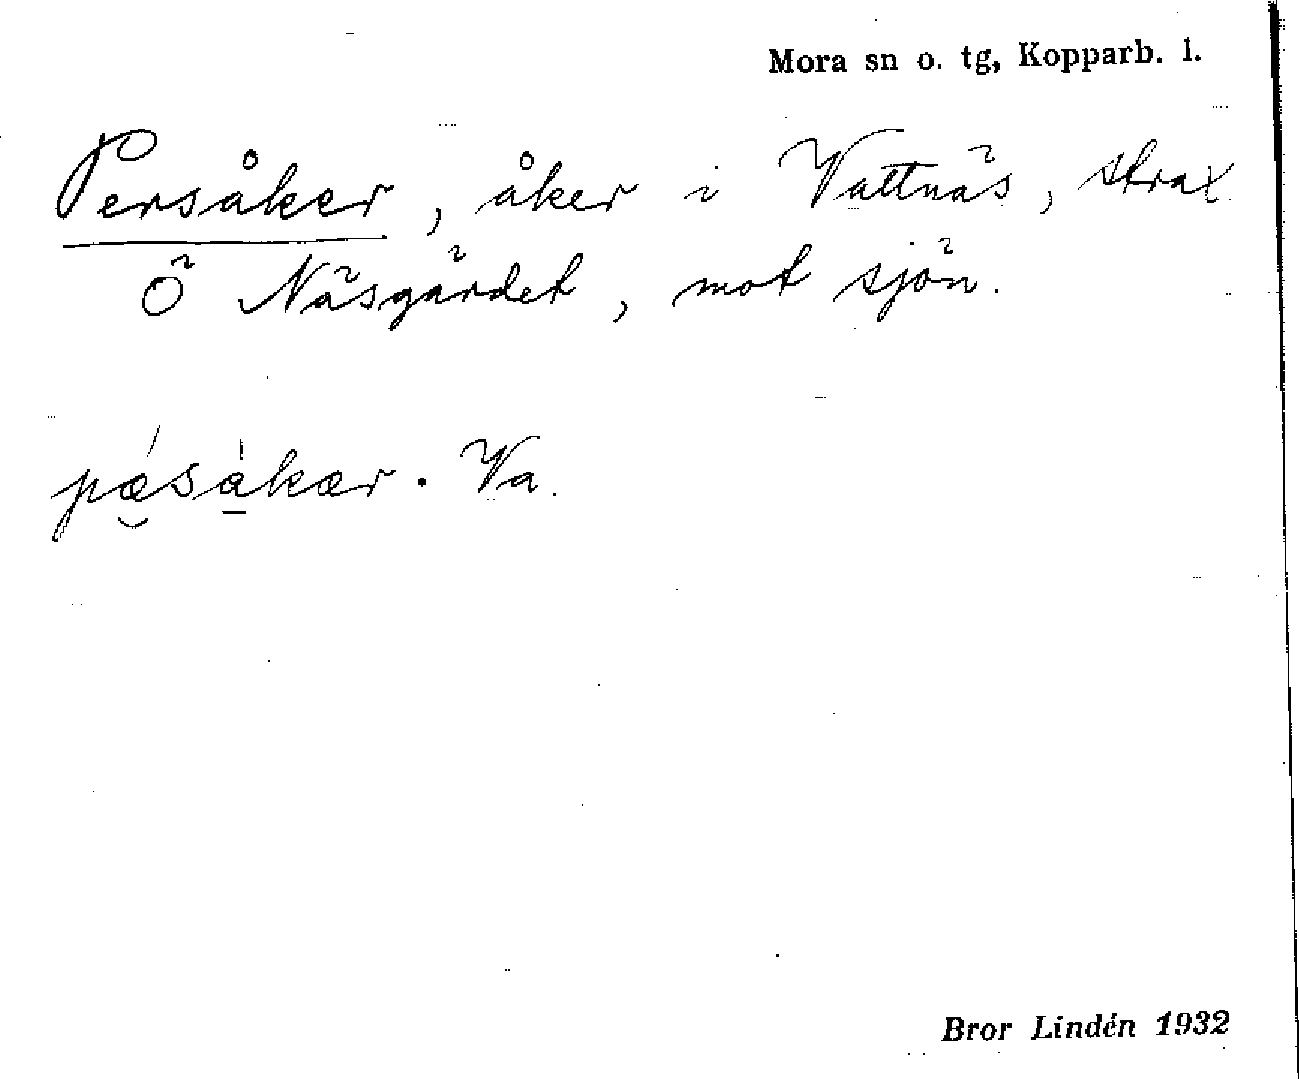 Mora sn o. tg, Kopparb. l.
Persåker, åker i Vattnäs, strax
Ö Näsgärdet, mot sjön.
pæsåkær. Va.
Bror Lindén 1932